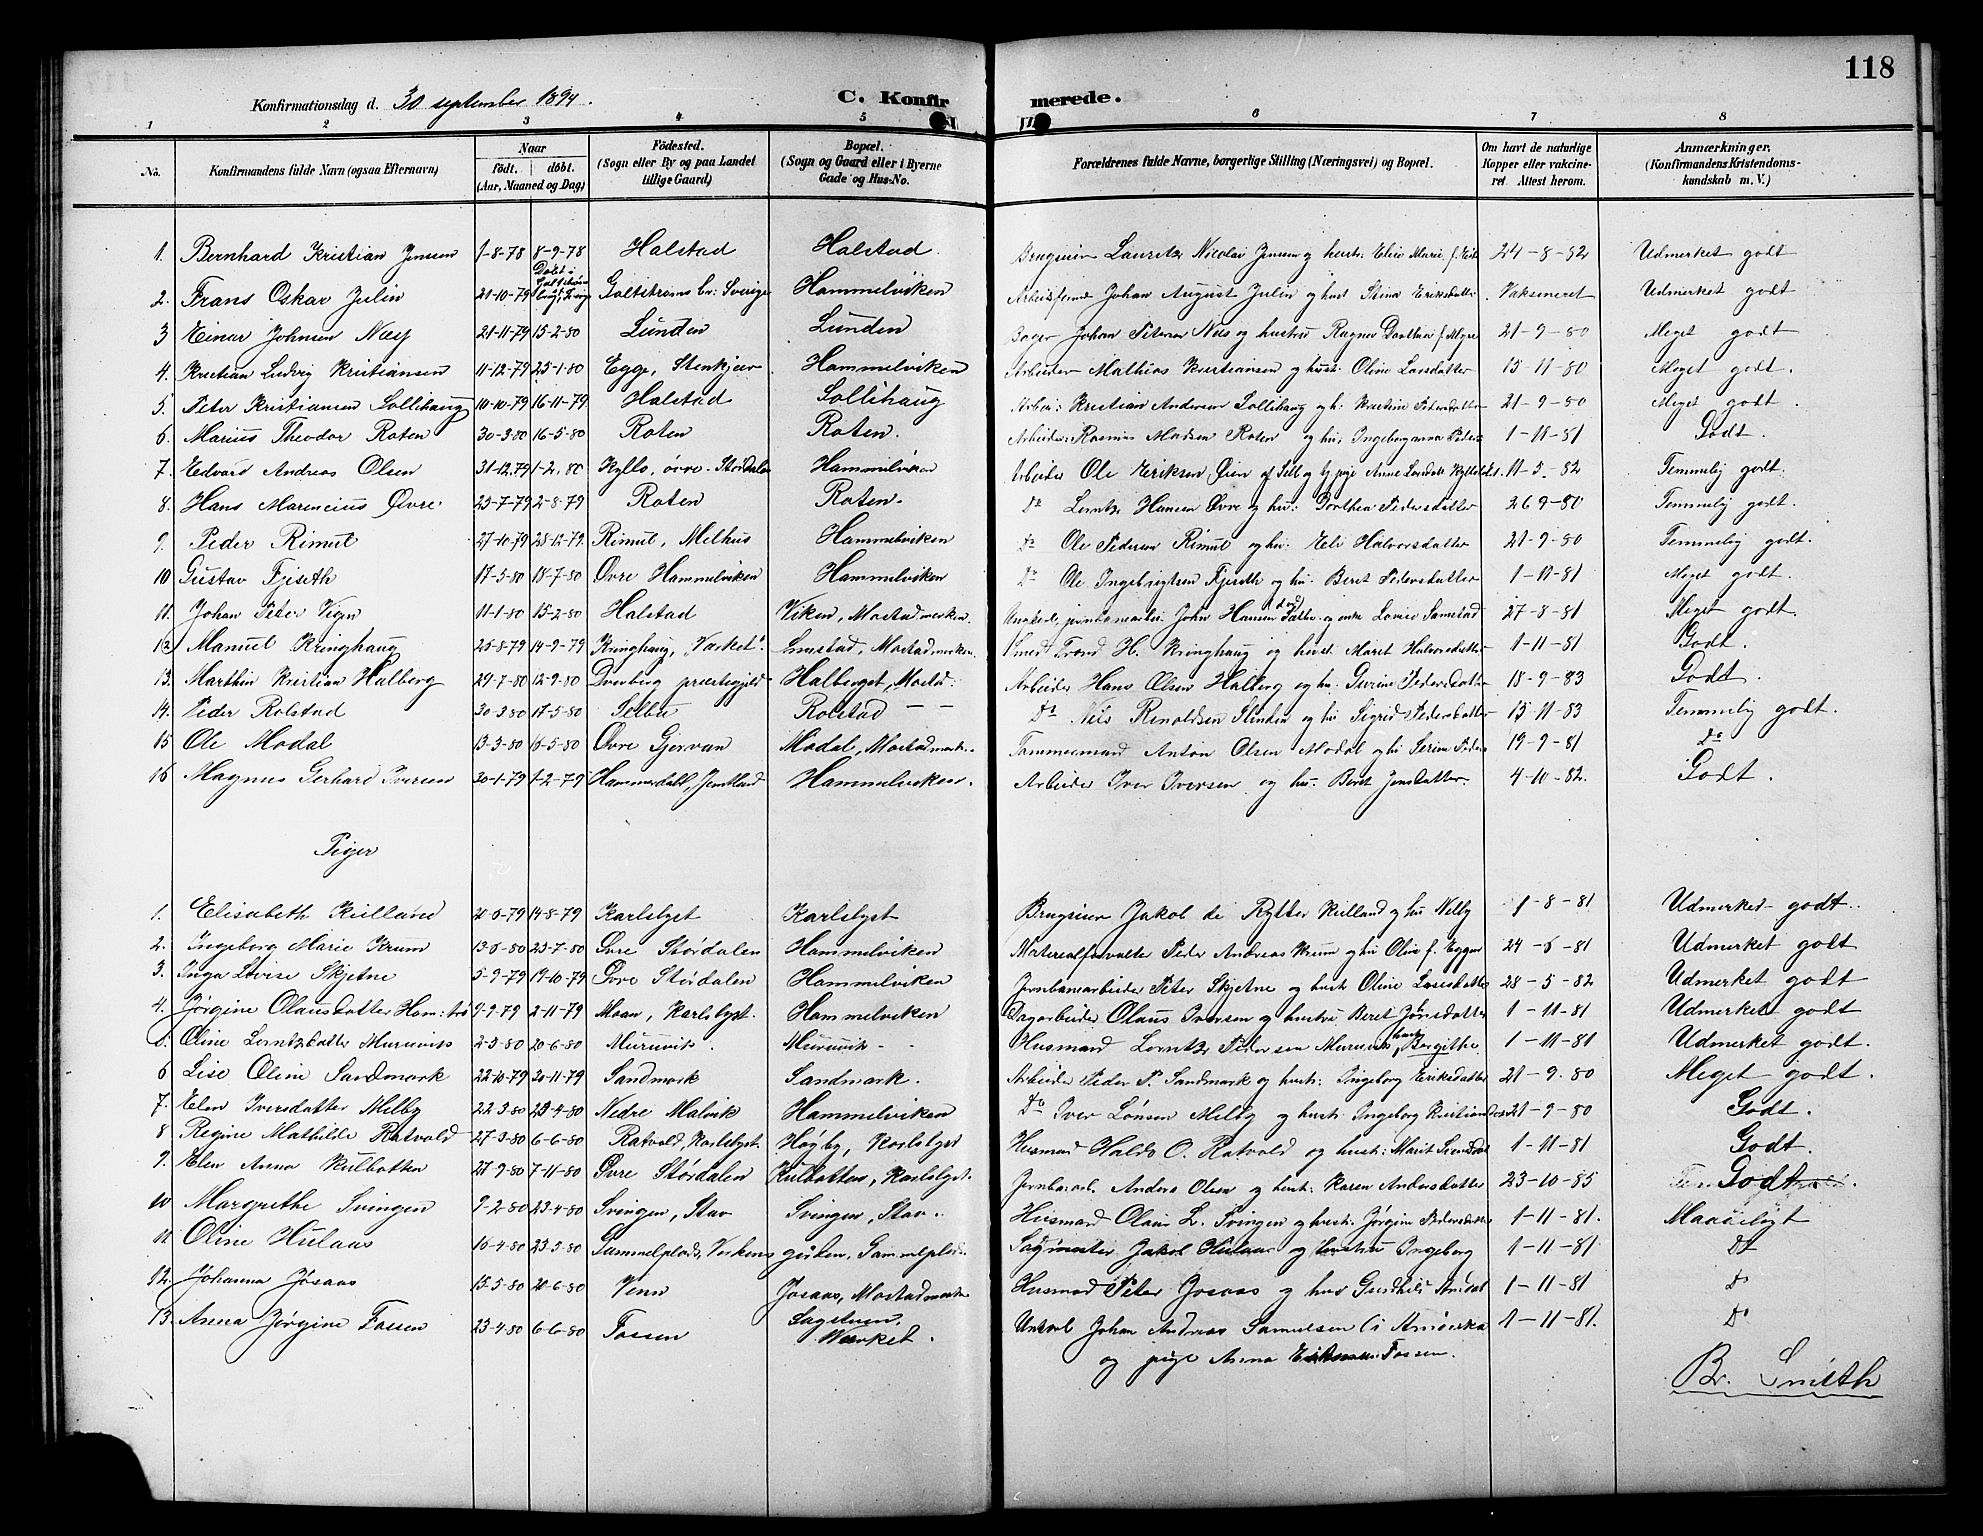 118
Konfirmationsdag d. 30 september 1894. C. Konfirmerede.
1 2 3 4 5 6 7 8
No. Konfirmandens fulde Navn (ogsaa Efternavn) Naar födt. döbt. (Aar, Maaned og Dag) Födested. (Sogn eller By og paa Landet tillige Gaard) Bopæl. (Sogn og Gaard eller i Byerne Gade og Hus-No. Forældrenes fulde Navne, borgerlige Stilling (Næringsvei) og Bopæl. Om havt de naturlige Kopper eller vakcineret Attest herom. Anmærkninger. (Konfirmandens Kristendomskundskab m. V.)
1. Bernhard Kristian Jensen 1-8-78 8-9-78 Halstad Halstad. Laurits Nicolai Jensen og hustr: Elie Marie 24-8-82 Udmerket godt
2. Frans Oskar Julin 21-10-79 Döbt i Galtströms Sverige Hammelviken Johan August Julin og hust Stina Eriksdatter Vaksineret Udmerket godt
3 Einar Johnsen Næs 21-11-79 15-2-80 Lunden Lunden Johan Petersen Næs og hustru Ragna Dorthea f. Myre 21-9-80 Meget godt
4. Kristian Ludvig Kristiansen 11-12-79 25-1-80 Egge, Stenkjær Hammelviken Arbeider Mathias Kristiansen og hust: Oline Larsdatter 15-11-80 Meget godt.
5. Peter Kristiansen Sollihaug 10-10-79 16-11-79 Halstad Sollihaug Arbei: Kristian Andersen Sollihaug og h: Kirstine Pedersdatter 21-9-80 Meget godt.
6. Marius Theodor Roten 30-3-80 16-5-80 Roten Roten. Arbeider: Rasmus Madsen Roten og hu, Ingeborganna Peders 1-11-81 Godt.
7. Edvard Andreas Olsen 31-12-79 1-2-80 Kyllo, övre Stördalen Hammelviken Arbeider Ole Eriksen Öien af Selb og pige Anne Larsdatt 11-5-82 Temmelig godt.
8. Hans Marencius Övre. 25-7-79 2-8-79 Roten Roten. Do Lorntz Hansen Övre og hu: Dorthea Pedersdatter 26 9-80 Temmelig godt.
9. Peder Rimul 27-10-79 28-12-79. Rimul, Melhus Hammelviken Do Ole Pedersen Rimul og hu: Eli Halvorsdatter 21-9-80 Temmelig godt.
10 Gustav Fjeseth 17-5-80 18-7-80 Övre Hammelviken Hammelviken Do Ole Ingebrigtsen Fjeseth og hu: Beret Pedersdatter 1-11-81 Meget godt.
11. Johan Peter Vign 11-1-80 15-2-80 Halstad Viken, Mostadmarken. Ungkarl jernbanearbei. John Hansen og enke Lovise Samstad 27-8-81 Meget godt.
12 Manuel Kringhaug 25-8-79 14-9-79 Kringhaug, Værket. Mostadmarken. Smed Trond H. Kringhaug og hust. Maret Halvorsdatter 1-11-81 Godt.
13. Marthin Kristian Halberg 29-7-80 12-9-80 Dverberg præstegjeld Halberget, Mostd: Arbeider Hans Olsen Halberg og hu: Gurine Pedersdatter 18-9-83 Godt.
14. Peder Rolstad 30-3-80 17-5-80 Selbu Rolstad — — Do Nils Renoldsen Slinden og hu Sigrid Pedersdatter 15-11-83 Temmelig godt.
15 Ole Modal 13-3-80 16-5-80 Övre Gjervan Modal, Mostadmark. Tømmermand Anton Olsen Modal og hu Serine Peders 19-9-81 Do
16 Magnus Gerhard Iversen 30-1-79 1-2-79 Hammerdahl, Jemtland Hammelviken. Arbeider Iver Iversen og hu. Beret Jensdatter. 4-10-82. Godt.
Piger
1. Elisabeth Kielland 14-8-79 Karlslyst Karlslyst Brugseier Jakob de Rytter Kielland og hu Nelly 1-8-81 Udmerket godt.
2. Ingeborg Marie Krum 13-6-80 25-7-80 Övre Stördalen Hammelviken Materialforvalter Peder Andreas Krum og hu Oline f. Eggen 24-6-81 Udmerket godt
3. Inga Lovise Skjetne 5-9-79 19-10-79 Övre Stördalen Hammelviken Jernbanearbeider Peter Skjetne og hustr Oline Larsdatter 28-5-82 Udmerket godt
4. Jörgine Olausdatter 9-9-79 2-11-79 Moan, Karlslyst. Hammelviken Dagarbeider Olaus Iversen og hustru Beret Jönsdatter 1-11-81 Udmerket godt
5. Oline Lorntsdatter Muruvik 2-3-80 20-6-80 Muruvik. Muruvik - Husmand Lorntz Pedersen Muruvik hust Bergithe 1-11-81 Udmerket godt.
6 Lise Oline Sandmark 22-10-79 30-11-79 Sandmark Sandmark. Arbeider Peder P. Sandmark og hustr: Ingeborg Eriksdatter 21-9.80 Meget godt.
7. Elen Iversdatter Melby 22 3-80 23-4-80 Nedre Malvik Hammelviken Do Iver Lönsen Melby og hustr: Ingeborg Kristiansd 21-9-80 Godt.
8 Regine Mathilde Ratvold 27-3-80 6-6-80 Ratvold, Karlslyst. Högby, Karlslyst Husmand Haldo O. Ratvold og hustr: Marit 1-11-81 Godt.
9. Elen Anna Kulbotten 27-9-80 7-11-80 Övre Stördalen Kulbotten, Karlslyst. Jernbanearb. Anders Olsen og hust: Karen Andersdatter 23-10-85 Godt
10 Margrethe Svingen 9-2-80 23-4-80 Svingen, Stav Svingen, Stav.. Husmand Olaus L. Svingen og hustr: Jörgine Pedersdatter 1-11-81. Maadeligt
11. Oline Hulaas 16-4-80 23-5-80 Gammelplads, Verkens gruben, Gammelplads. Sagmester Jakob Hulaas og hustru Ingeborg 1-11-81 Do
12. Johanna Jösaas 15-5-80 20-6-80 Venn Jösaas, Mostadmarken Husmand Peter Josaas og hus Gundhild Amdat 1-11-81 Do
13. Anna Jörgine Fossen 23-4-80 6-6-80 Fossen Værket. Unkarl Johan Andreas Samuelsen (i Amerika 1-11-81. Do
og pige Anna Fossen.
Br. Smith